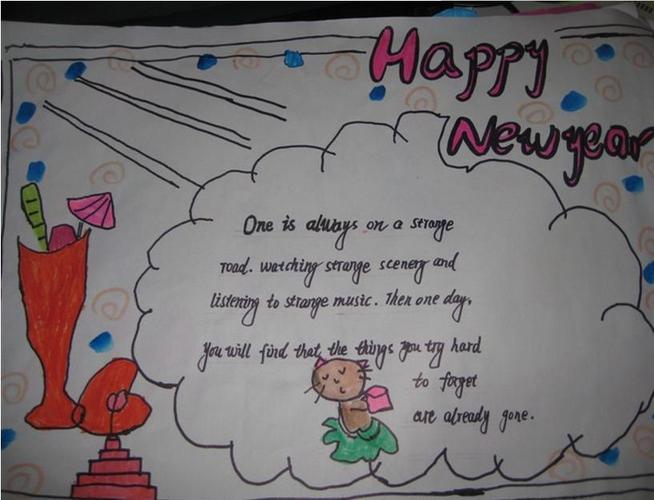 Happy
New year
One is always on a strange
road. watching strange scenery and
listening to strange music. Then one day,
You will find that the things you try hard
to forget
are already gone.